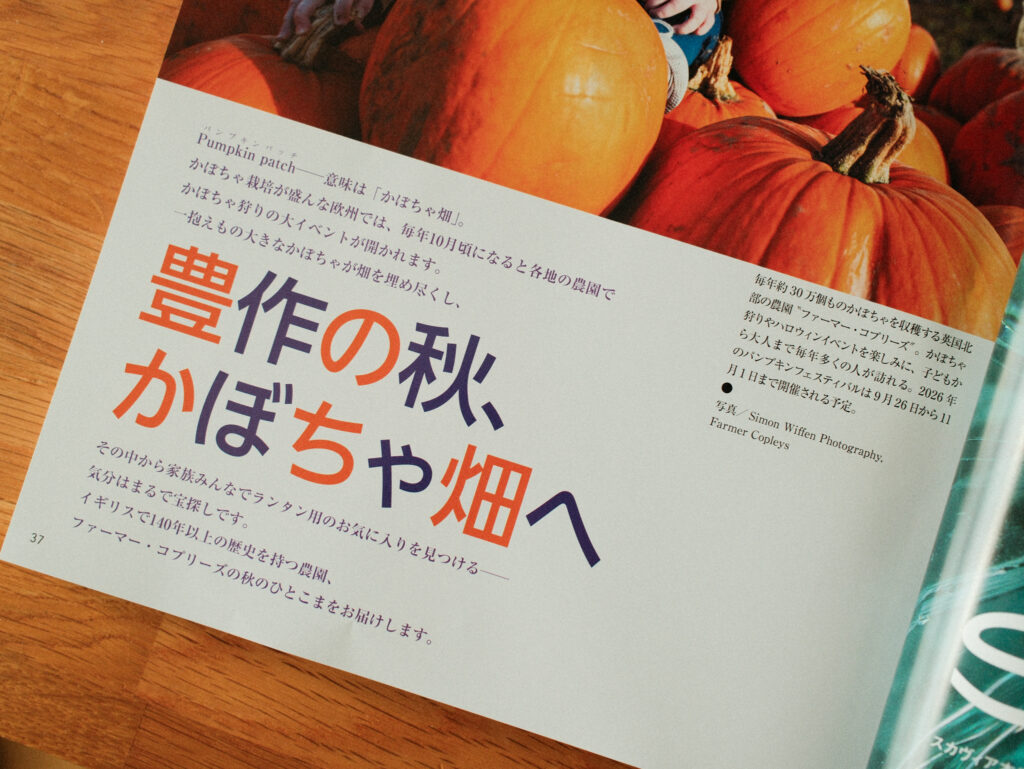 パンプキンパッチ
Pumpkin patch――意味は「かぼちゃ畑」。
かぼちゃ栽培が盛んな欧州では、毎年10月頃になると各地の農園で
かぼちゃ狩りの大イベントが開かれます。
一抱えもの大きなかぼちゃが畑を埋め尽くし、
豊作の秋、
かぼちゃ畑へ
その中から家族みんなでランタン用のお気に入りを見つける――
気分はまるで宝探しです。
イギリスで140年以上の歴史を持つ農園、
ファーマー・コプリーズの秋のひとこまをお届けします。
37
毎年約30万個ものかぼちゃを収穫する英国北
部の農園〝ファーマー・コプリーズ〟。かぼちゃ
狩りやハロウィンイベントを楽しみに、子どもか
ら大人まで毎年多くの人が訪れる。2026年
のパンプキンフェスティバルは9月26日から11
月1日まで開催される予定。
●
写真／Simon Wiffen Photography,
Farmer Copleys
スカヴィア